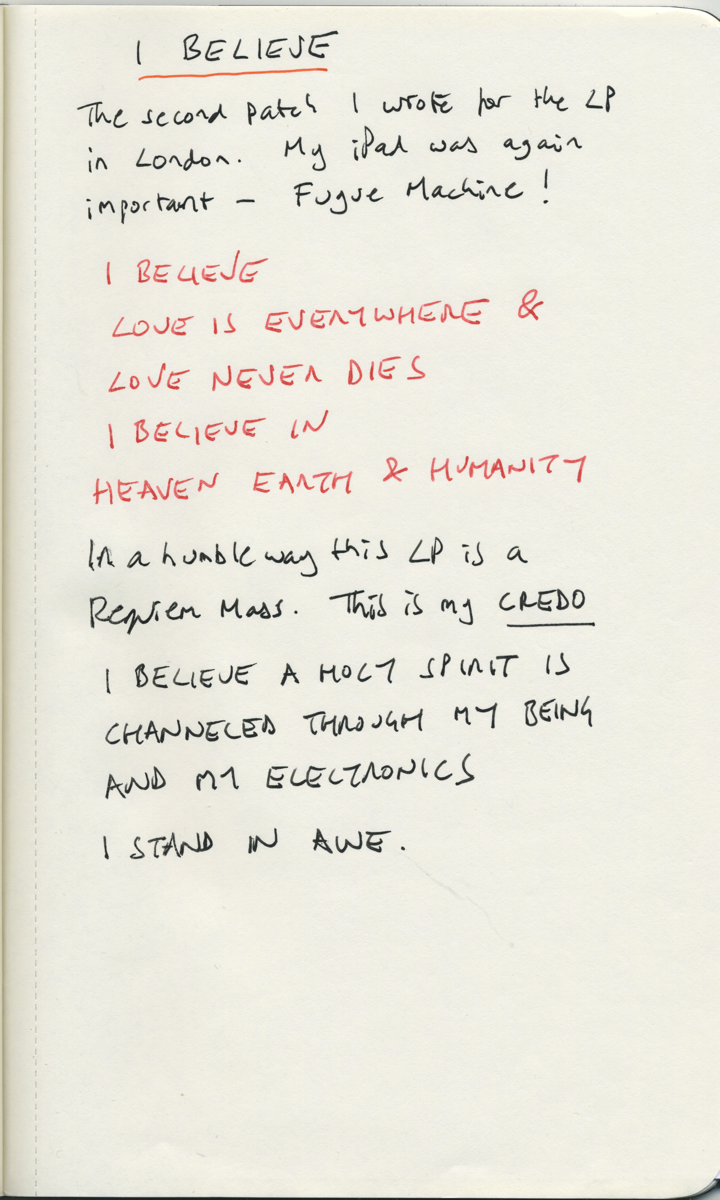 I BELIEVE
The second patch I wrote for the LP
in London. My iPad was again
important – Fugue Machine!
I BELIEVE
LOVE IS EVERYWHERE &
LOVE NEVER DIES
I BELIEVE IN
HEAVEN EARTH & HUMANITY
In a humble way this LP is a
Requiem Mass. This is my CREDO
I BELIEVE A HOLY SPIRIT IS
CHANNELED THROUGH MY BEING
AND MY ELECTRONICS
I STAND IN AWE.